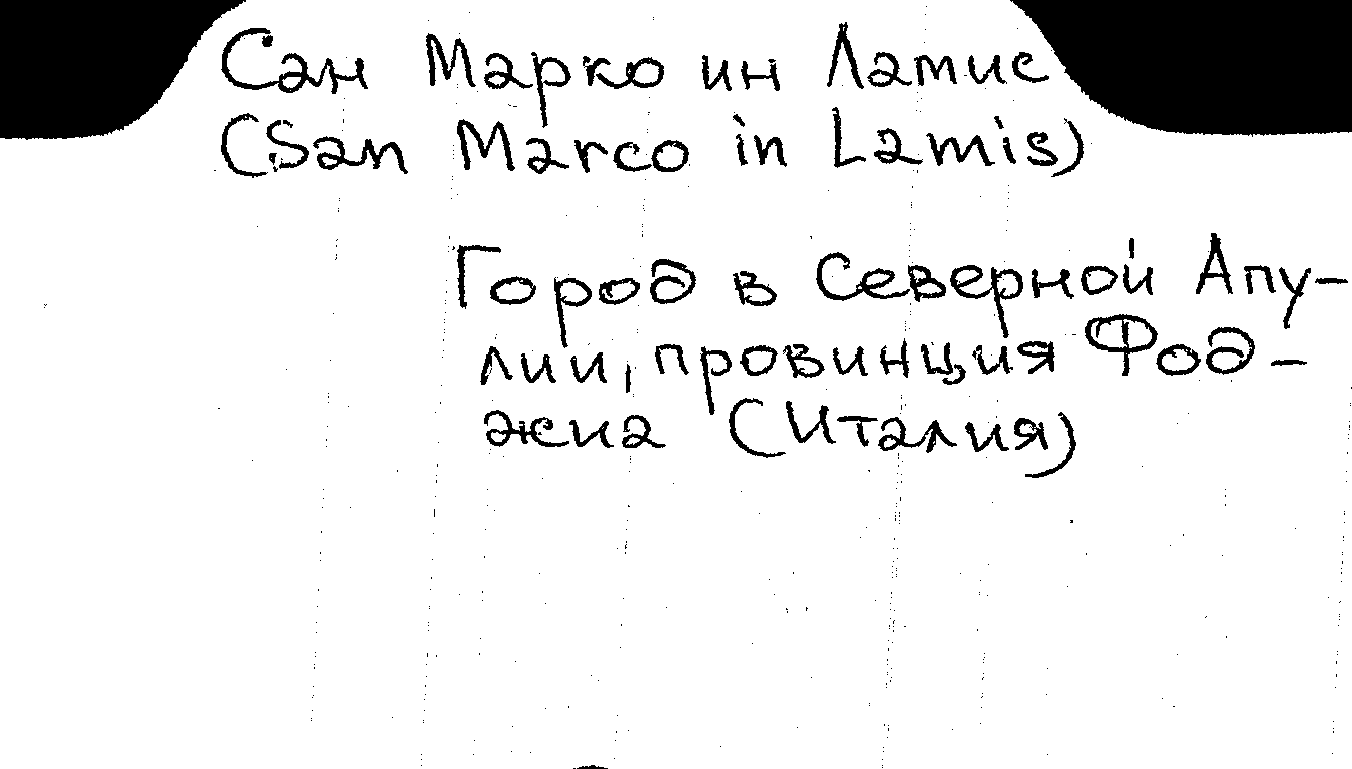 Сан Марко ин Ламис
(San Marco in Lamis)
Город в Северной Апу-
лии, провинция Фод-
жиа (Италия)